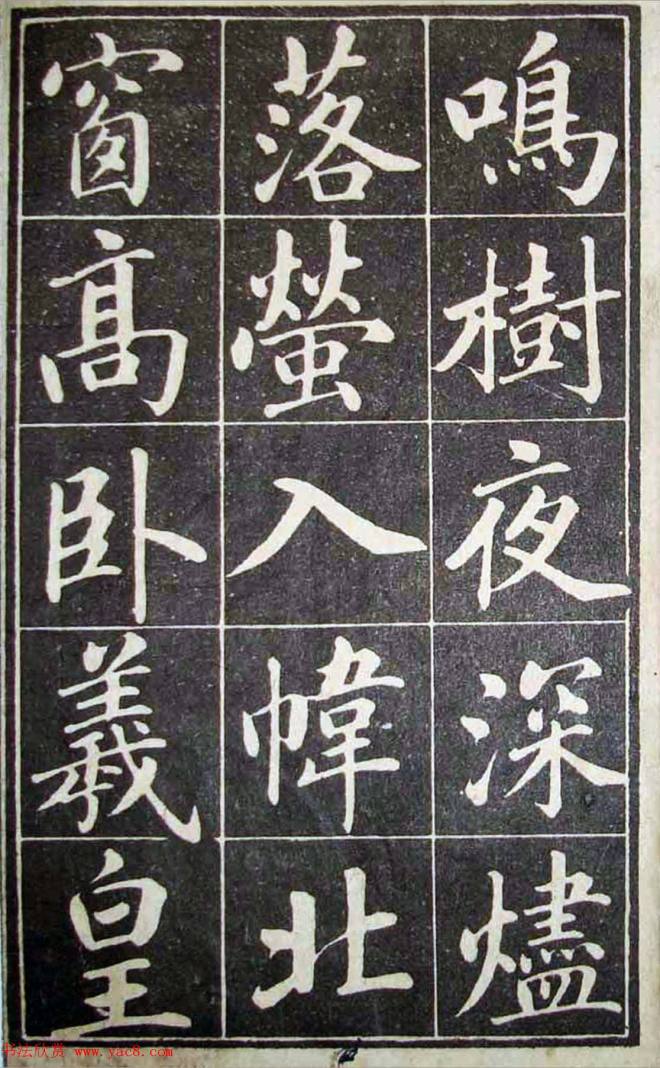 鳴樹夜深燼
落螢入幃北
窗高卧羲皇
书法欣赏 www.yac8.com